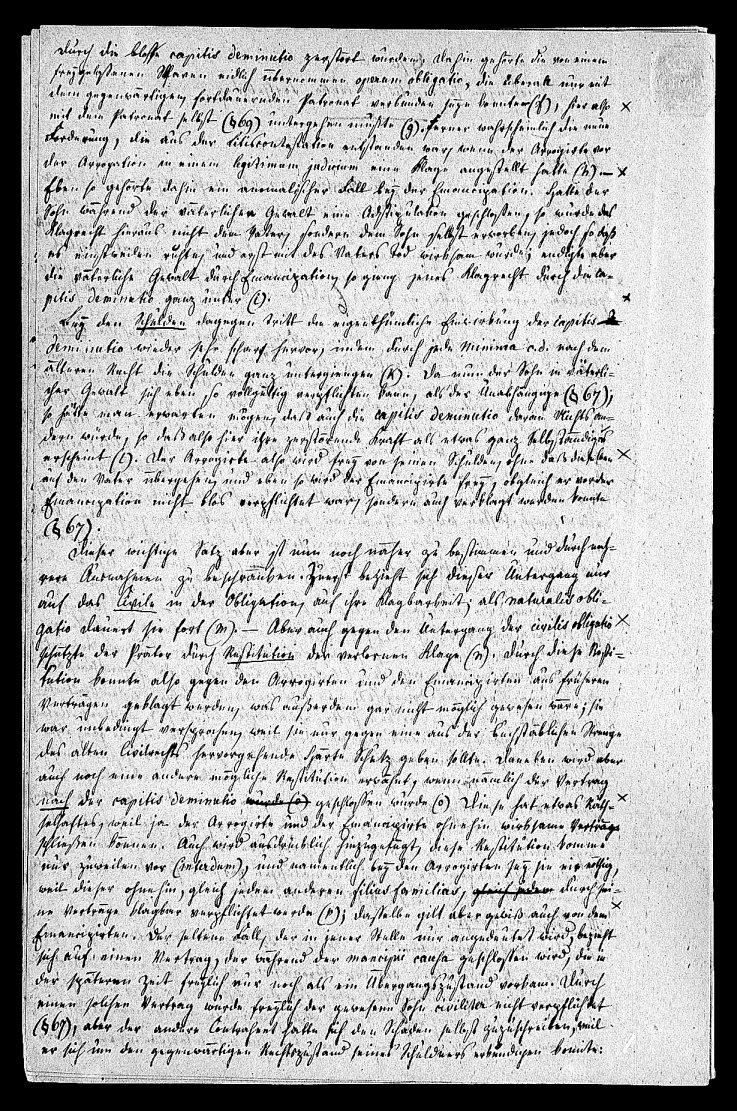 durch die bloße capitis deminutio zerstört wurden. Dahin gehörte die von einem
freygelassenen Sklaven eidlich übernommene operarum obligatio, die überall nur mit
dem gegenwärtigen, fortdauernden Patronat verbunden seyn konnte (f), hier also
mit dem Patronat selbst (§ 69) untergehen mußte (g). Ferner wahrscheinlich die neue
Forderung, die aus der Litiscontestation entstanden war, wenn der Arrogirte vor
der Arrogation in einem legitimum judicium eine Klage angestellt hatte (h). —
Eben so gehörte dahin ein anomalischer Fall bey der Emancipation. Hatte der
Sohn während der väterlichen Gewalt eine Adstipulation geschlossen, so wurde das
Klagrecht hieraus nicht dem Vater, sondern dem Sohn selbst erworben, jedoch so daß
es einstweilen ruhte, und erst mit des Vaters Tod wirksam wurde; endigte aber
die väterliche Gewalt durch Emancipation, so gieng jenes Klagrecht durch die ca-
pitis deminutio ganz unter (i).
Bey den Schulden dagegen tritt die eigenthümliche Einwirkung der capitis
deminutio wieder sehr scharf hervor, indem durch jede minima c.d. nach dem
älteren Recht die Schulden ganz untergiengen (k). Da nun der Sohn in väterli-
cher Gewalt sich eben so vollgültig verpflichten kann, als der Unabhängige (§ 67),
so hätte man erwarten mögen, daß auch die capitis deminutio daran Nichts än-
dern würde, so daß also hier ihre zerstörende Kraft als etwas ganz Selbständiges
erscheint (l). Der Arrogirte also wird frey von seinen Schulden, ohne daß dieselben
auf den Vater übergehen, und eben so wird der Emancipirte frey, obgleich er vor der
Emancipation nicht blos verpflichtet war, sondern auch verklagt werden konnte
(§ 67).
Dieser wichtige Satz aber ist nun noch näher zu bestimmen und durch meh-
rere Ausnahmen zu beschränken. Zuerst bezieht sich dieser Untergang nur
auf das Civile in der Obligation, auf ihre Klagbarkeit; als naturalis obli-
gatio dauert sie fort (m). — Aber auch gegen den Untergang der civilis obligatio
schützte der Prätor durch Restitution der verlornen Klage (n). Durch diese Resti-
tution konnte also gegen den Arrogirten und den Emancipirten aus früheren
Verträgen geklagt werden, was außerdem gar nicht möglich gewesen wäre; sie
war unbedingt versprochen, weil sie nur gegen eine aus der buchstäblichen Strenge
des alten Civilrechts hervorgehende Härte Schutz geben sollte. Daneben wird aber
auch noch eine andere mögliche Restitution erwähnt, wenn nämlich der Vertrag
nach der capitis deminutio wurde (o) geschlossen wurde (o). Diese hat etwas Räth-
selhaftes, weil ja der Arrogirte und der Emancipirte ohnehin wirksame Verträge
schließen können. Auch wird ausdrücklich hinzugefügt, diese Restitution komme
nur zuweilen vor (interdum), und namentlich bey den Arrogirten sey sie nie nöthig,
weil dieser ohnehin, gleich jedem anderen filiusfamilias, gleich jedem durch sei-
ne Verträge klagbar verpflichtet werde (p); dasselbe gilt aber gewiß auch von dem
Emancipirten. Der seltene Fall, der in jener Stelle nur angedeutet wird, bezieht
sich auf einen Vertrag, der während der mancipii causa geschlossen wird, die in
der späteren Zeit freylich nur noch als ein Übergangszustand vorkam. Durch
einen solchen Vertrag wurde freylich der gewesene Sohn civiliter nicht verpflichtet
(§ 67), aber der andere Contrahent hatte sich den Schaden selbst zuzuschreiben, weil
er sich um den gegenwärtigen Rechtszustand seines Schuldners erkundigen konnte.